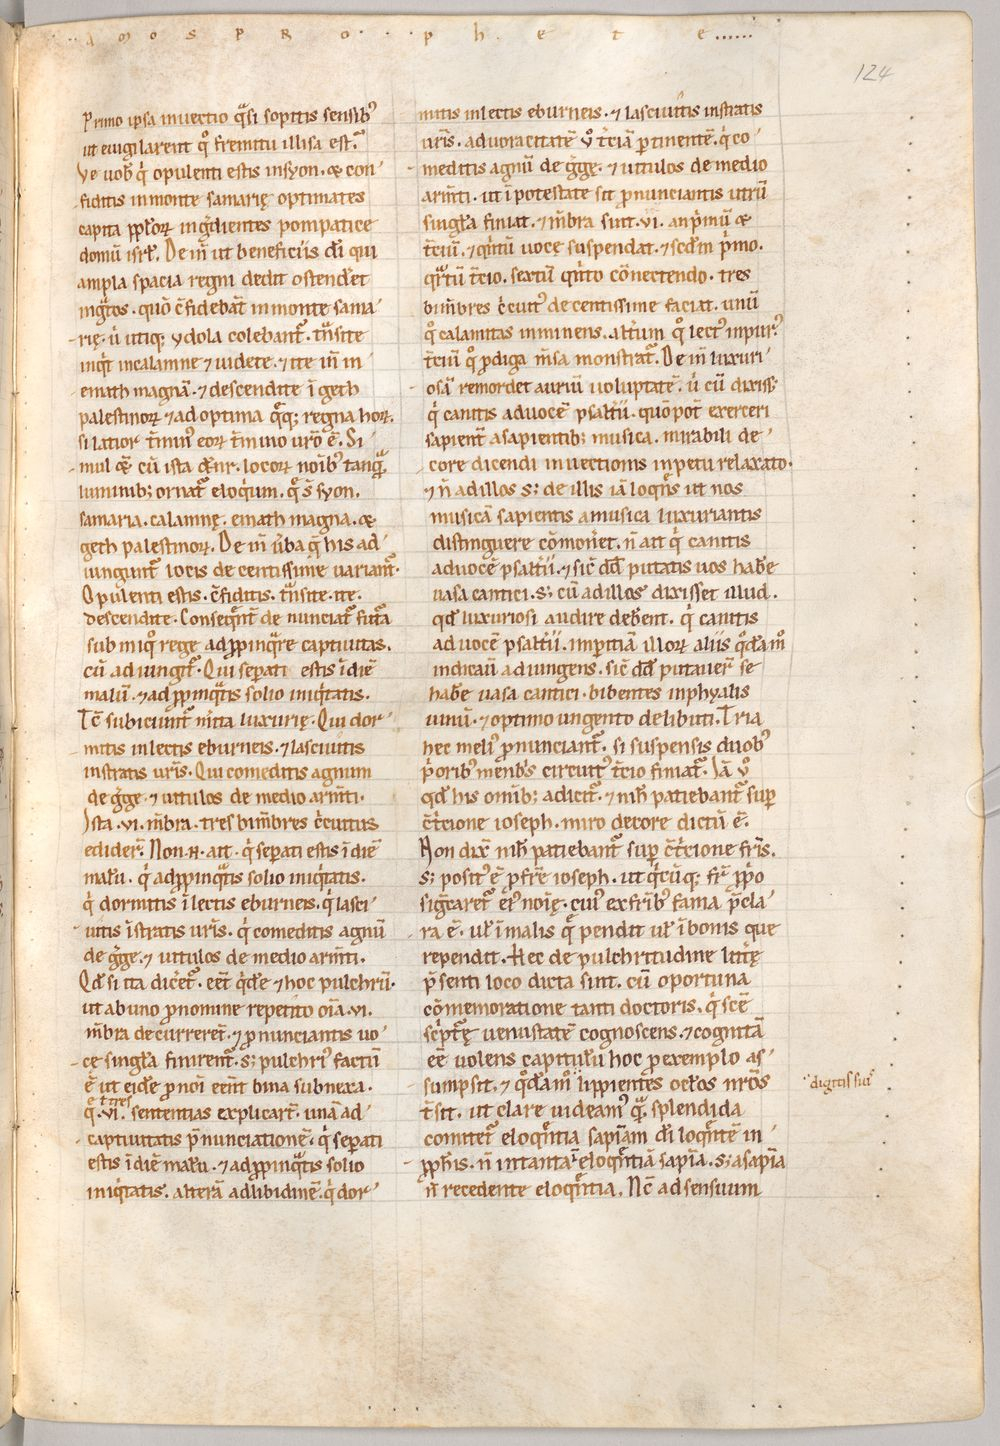 A M O S P R O . . P H . E T E ......
124
Primo ipsa inuectio q̊si sopitis sensib᷒
ut euigilarent q̊ fremitu illisa est.
Ve uob᷒ q̇ opulenti estis insyon. & con
fiditis inmonte samarię optimates
capita pp̄lorꝝ ingͣdientes pompatice
domū isrł. De in̄ ut beneficiis dī qui
ampla spacia regni dedit ostendet
ingͣtos. quō c̄fidebāt inmonte sama
rię. ů utiq; ydola colebant᷑. tͣnsite
inqͥt incalamne ⁊ uidete. ⁊ ite in̄ in
emath magnā. ⁊ descendite ī geth
palestinorꝝ ⁊ ad optima qͣq; regna horꝝ.
si latior t̄min᷒ eorꝝ t̄mino ur̄o ē. Si
mul &̄ cū ista d̄nr. locorꝝ noīb᷒ tanqͣ
luminib; ornat᷑ eloqͥum. q̊ s̄ syon.
samaria. calamnę. emath magna. &
geth palestinorꝝ. De in̄ ůba q̄ his ad
iungunt᷑ locis decentissime uariant᷑.
Opulenti estis. c̄fiditis. tͣnsite. ite.
descendite. Conseqͥnt̄ denunciat᷑ futͣa
sub iniqͦ rege adp̱pinqͣre captiuitas.
cū adiungit᷑. Qui sep̱ati estis ī diē
malū. ⁊ adp̱pinqͣtis solio iniqͥtatis.
Tc̄ subiciunt᷑ m̄ita luxurię. Qui dor
mitis inlectis eburneis. ⁊ lasciuitis
instratis uris̄. Qui comeditis agnum
de gͤge. ⁊ uitulos de medio arm̄ti.
Ista .vi. m̄bra. tres bimb̄res c̓cuitus
edider̄. Non. n̄. ait. q̇ sep̱ati estis ī diē
malū. q̇ adp̱pinqͣtis solio iniqͥtatis.
q̇ dormitis ī lectis eburneis. q̇ lasci
uitis īstratis uris̄. q̇ comeditis agnū
de gͤge. ⁊ uitulos de medio arm̄ti.
Qd̄ si ita dic̓et᷑. eēt qͥdē ⁊ hoc pulchrū.
ut ab uno ꝓnomine repetito oīa .vi.
m̄bra decurrerēt. ⁊ ꝓnunciantis uo
ce singl̄a finirent᷑. s; pulchri᷒ factū
ē ut eidē ꝓnoī eēnt bina subnexa.
ł tres
q̊ .vi. sententias explicar̄t. unā ad
captiuitatis p̄nunciationē. q̇ sep̱ati
estis ī diē malū. ⁊ adp̱pinqͣtis solio
iniqͥtatis. alterā adlibidinē. q̇ dor
mitis inlectis eburneis. ⁊ lasciuitis instratis
uris̄. aduoracitatē ů t̄ciā ꝑtinentē. q̇ co
meditis agnū de gͤge. ⁊ uitulos de medio
arm̄ti. ut ī potestate sit ꝓnunciantis utrū
singl̄a finiat. ⁊ m̄bra sint .vi. an pͥmū &
t̄ciū. ⁊ qͥntū uocę suspendat. ⁊ scd̄m pͥmo.
qͣrtū t̄cio. sextū qͥnto cōnectendo. tres
bimb̄res c̓cuit᷒ decentissime faciat. unū
q̊ calamitas inminens. alt̓um q̊ lect᷒ inpur᷒.
t̄ciū q̊ ꝓdiga m̄sa monstrat᷑. De in̄ luxuri
osā remordet auriū uoluptatē. ů cū dixiss᷑
q̇ canitis aduocē psaltii̓. quō pōt exerceri
sapient̄ asapientib; musica. mirabili de
core dicendi inuectionis inpetu relaxato.
⁊ n̄ adillos s; de illis iā loqn̄s ut nos
musicā sapientis amusica luxuriantis
distinguere cōmon̓et. n̄ ait q̇ canitis
aduocē psaltii̓. ⁊ sic̄ dd̄ putatis uos hab̄e
uasa cantici. s; cū adillos dixisset illud.
qd̄ luxuriosi audire deb̄ent. q̇ canitis
ad uocē psaltii̓. imp̱itiā illorꝝ aliis q̊dāmͦ
indicau̓ adiungens. sic̄ dd̄ putauer̄ se
hab̄e uasa cantici. bibentes inphyalis
uinū. ⁊ optimo ungento delibuti. Tria
hec meli᷒ ꝓnunciant᷑. si suspensis duob᷒
pͥorib᷒ menb̄s circuit᷒ t̄cio finiat᷑. Iā ů
qd̄ his omīb; adicit᷑. ⁊ nih̄ patiebant᷑ sup̱
c̄tͥcione ioseph. miro decore dictū ē.
Non dix̄ nih̄ patiebant᷑ sup̱ c̄tͥcione fris̄.
s; posit᷒ ē ꝓ fr̄e ioseph. ut qͥcūq; fr̄ p̱pͥo
signaret᷑ ei᷒ noīę. cui᷒ ex frīb᷒ fama p̄cla
ra ē. uł ī malis qͣ pendit uł ī bonis que
rependit. Hec de pulchritudine litt̓ę
p̄senti loco dicta sint. cū oportuna
cōmemoratione tanti doctoris. q̇ scē
sc̓pt̓ę uenustatē cognoscens. ⁊ cognitā
eē uolens capitulū hoc ꝑ exemplo as
sumpsit. ⁊ q̊dāmͦ lippientes oclos nr̄os
digitis sui᷒
t̄sit. ut clare uideam᷒ qͣ splendida
comitet᷑ eloqn̄tia sapiām dī loqn̄tē in
p̱ph̄is. n̄ intantā eloqn̄tiā sapīa. s; asapīa
n̄ recedente eloqn̄tia. Nc̄ ad sensuum